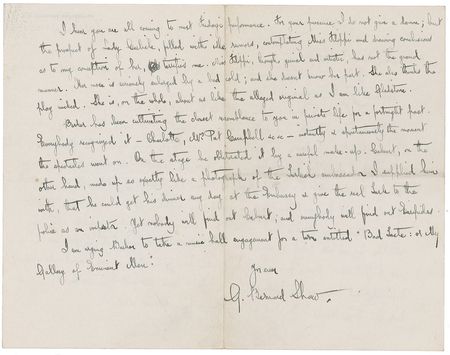 I hear you are all coming to next Friday's performance. For your presence I do not give a damn; but
the prospect of Lady Carlisle, filled with the rumors, contemplating Miss Filippi and drawing conclusions
as to my conception of her, terrifies me. Miss Filippi, though genial and artistic, has not the grand
manner. Her nose is seriously enlarged by a bad cold; and she doesn't know her part. She also thinks the
play wicked. She is, on the whole, about as like the alleged original as I am like Gladstone.
Barker has been cultivating the closest resemblance to you in private life for a fortnight past.
Everybody recognized it – Charlotte, Mrs Pat Campbell &c &c – instantly & spontaneously the moment
the spectacles went on. On the stage he obliterated it by a mild make-up. Calvert, on the
other hand, made up so exactly like a photograph of the I supplied him
with, that he could get his dinner any day at the Embassy & give the real to the
police as an impostor. Yet nobody will find out Calvert; and everybody will find out Euripides
I am urging Barker to take a music hall engagement for a turn entitled "Bad Taste: or My
Gallery of Eminent Men."
yours ever
G. Bernard Shaw.